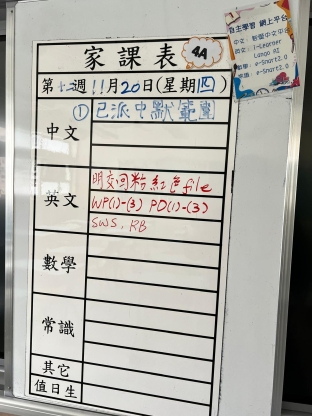 家課表 4A
第十二週 11月20日(星期四)
中文
① 已派中默範圍
英文
明交回粉紅色file
WP(1)-(3) PD(1)-(3)
SWS, RB
數學
常識
其它
值日生
自主學習 網上平台
中文：
英文：i-Learner
Lango AI
數學：e-Smart2.0
常識：e-Smart2.0